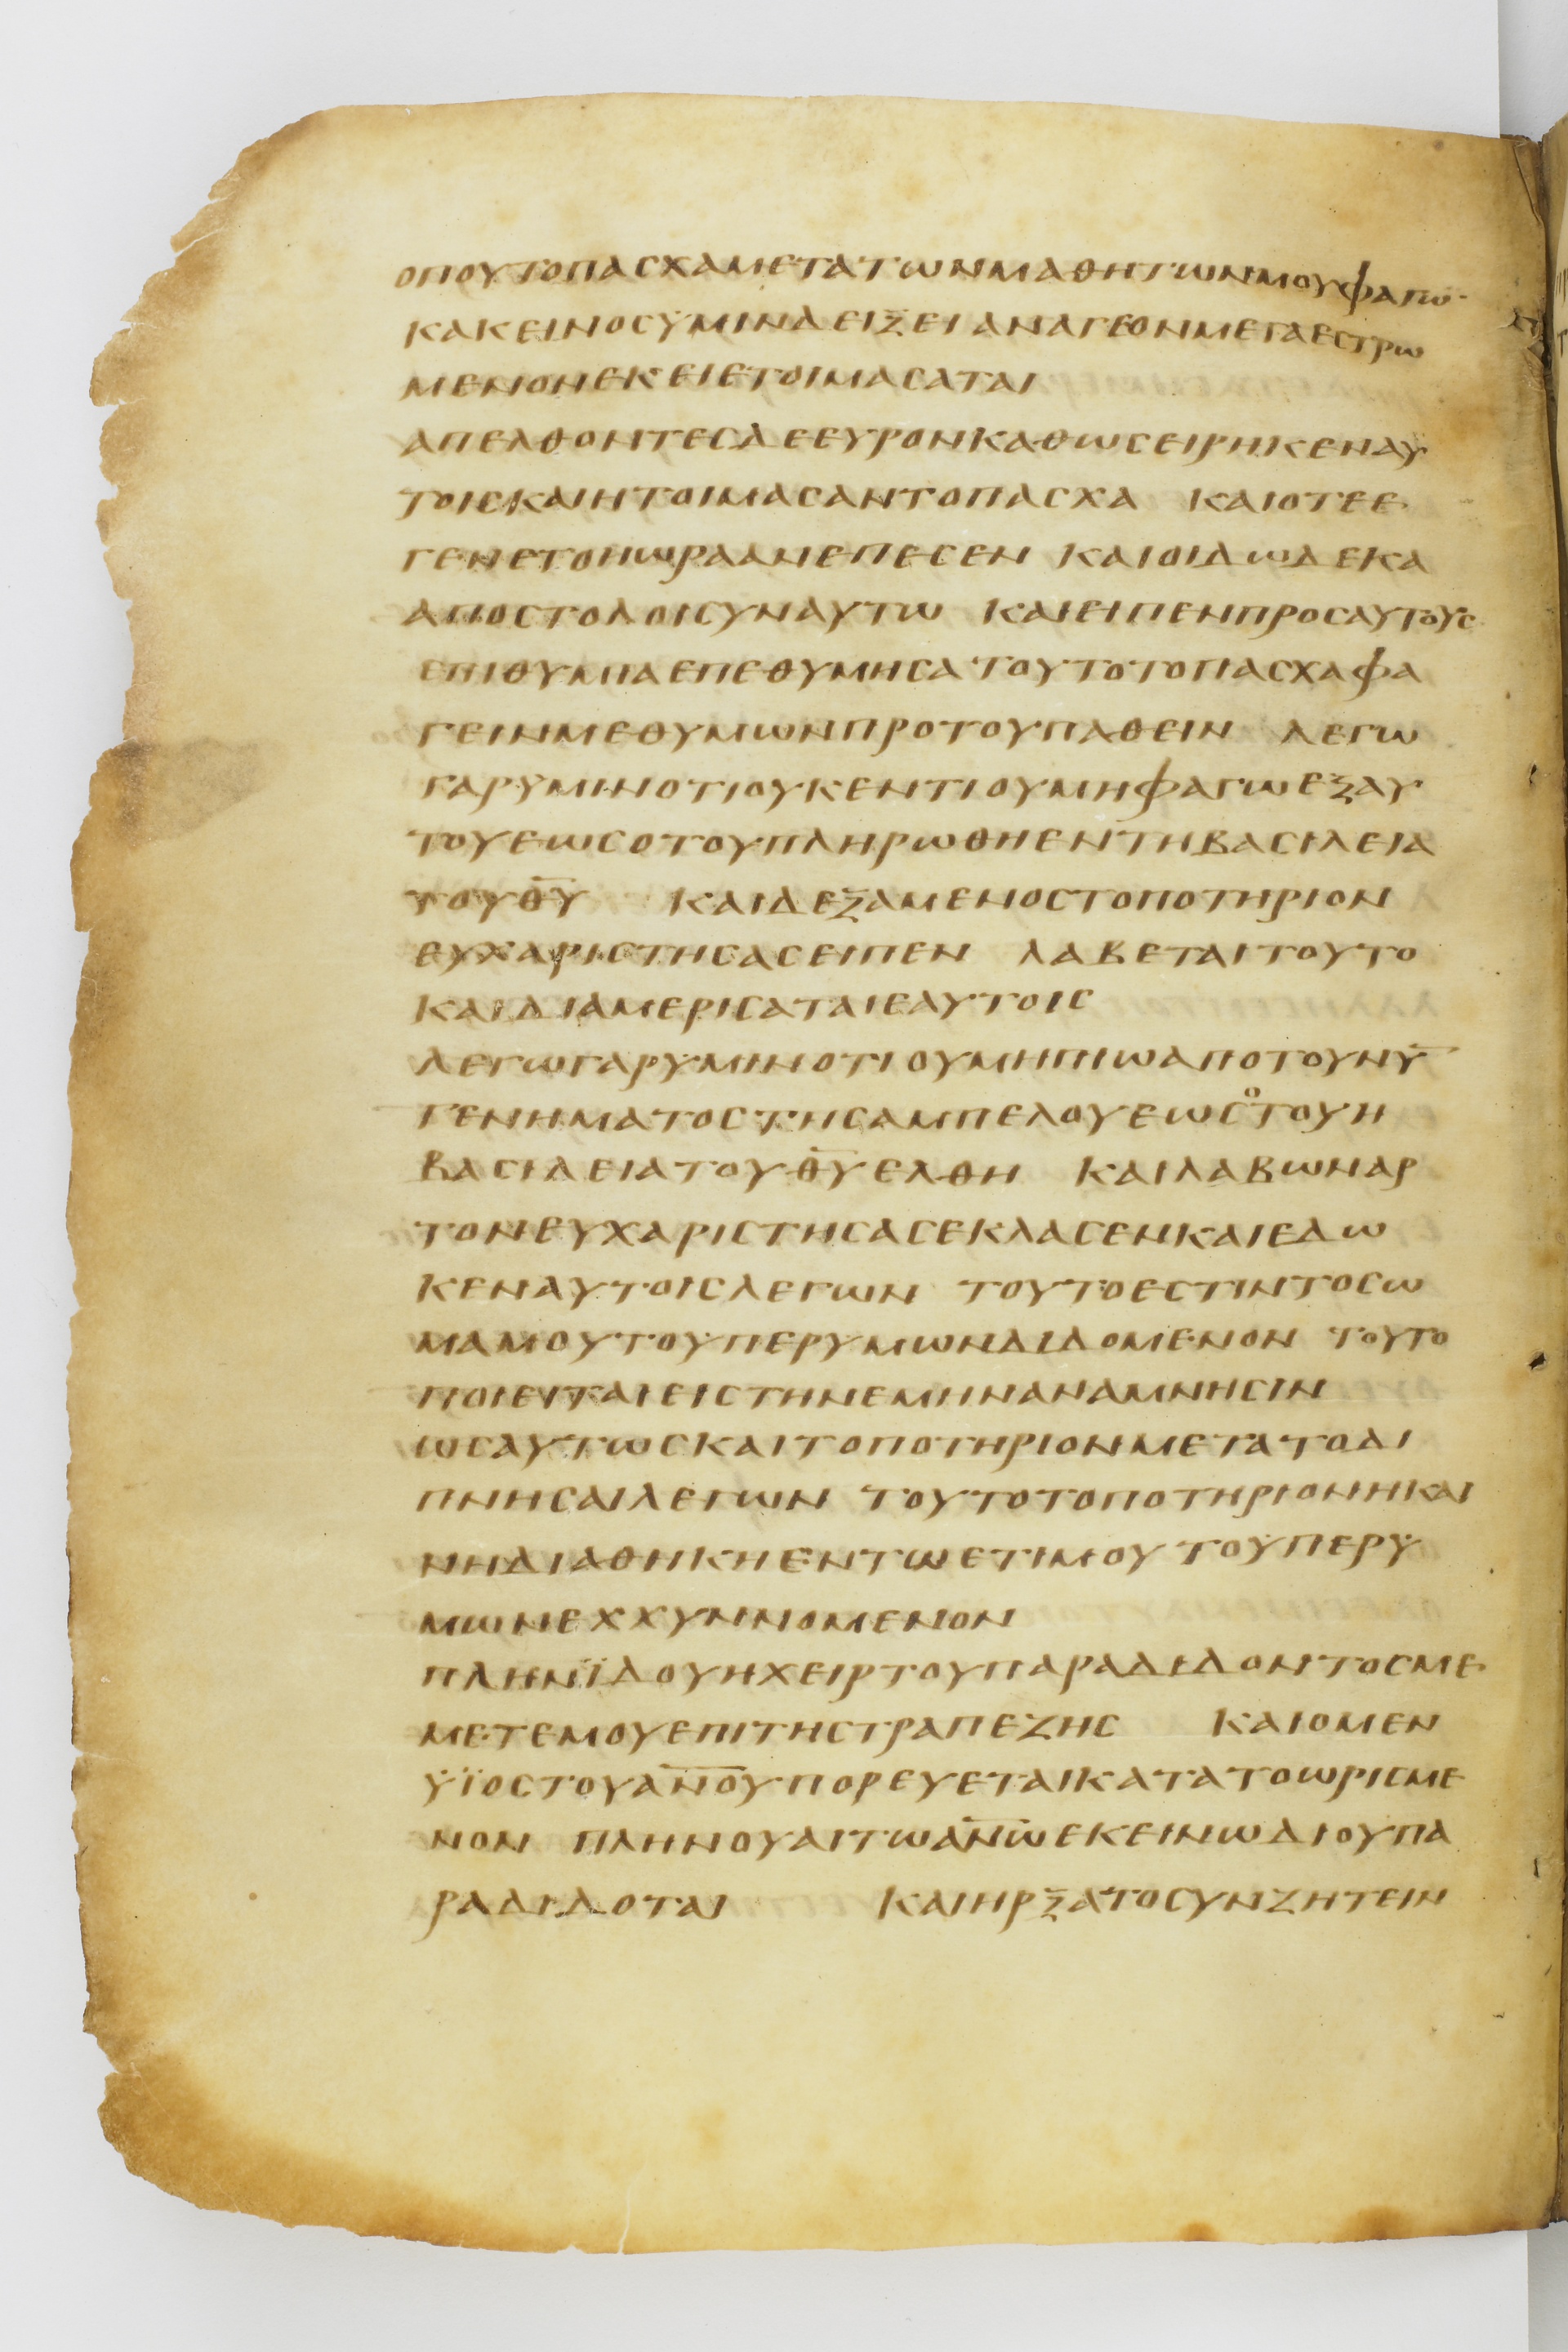 ΟΠΟΥΤΟΠΑΣΧΑΜΕΤΑΤΩΝΜΑΘΗΤΩΝΜΟΥΦΑΓΩ·
ΚΑΚΕΙΝΟΣΫΜΙΝΔΕΙΞΕΙΑΝΑΓΕΟΝΜΕΓΑΕΣΤΡΩ
ΜΕΝΟΝΕΚΕΙΕΤΟΙΜΑΣΑΤΑΙ
ΑΠΕΛΘΟΝΤΕΣΔΕΕΥΡΟΝΚΑΘΩΣΕΙΡΗΚΕΝΑΥ
ΤΟΙΣΚΑΙΗΤΟΙΜΑΣΑΝΤΟΠΑΣΧΑ ΚΑΙΟΤΕΕ
ΓΕΝΕΤΟΗΩΡΑΑΝΕΠΕΣΕΝ ΚΑΙΟΙΔΩΔΕΚΑ
ΑΠΟΣΤΟΛΟΙΣΥΝΑΥΤΩ ΚΑΙΕΙΠΕΝΠΡΟΣΑΥΤΟΥΣ
ΕΠΙΘΥΜΙΑΕΠΕΘΥΜΗΣΑΤΟΥΤΟΤΟΠΑΣΧΑΦΑ
ΓΕΙΝΜΕΘΥΜΩΝΠΡΟΤΟΥΠΑΘΕΙΝ ΛΕΓΩ
ΓΑΡΫΜΙΝΟΤΙΟΥΚΕΝΤΙΟΥΜΗΦΑΓΩΕΞΑΥ
ΤΟΥΕΩΣΟΤΟΥΠΛΗΡΩΘΗΕΝΤΗΒΑΣΙΛΕΙΑ
ΤΟΥΘ̅Υ̅ ΚΑΙΔΕΞΑΜΕΝΟΣΤΟΠΟΤΗΡΙΟΝ
ΕΥΧΑΡΙΣΤΗΣΑΣΕΙΠΕΝ ΛΑΒΕΤΑΙΤΟΥΤΟ
ΚΑΙΔΙΑΜΕΡΙΣΑΤΑΙΕΑΥΤΟΙΣ
ΛΕΓΩΓΑΡΫΜΙΝΟΤΙΟΥΜΗΠΙΩΑΠΟΤΟΥΝΥ̅
ΓΕΝΗΜΑΤΟΣΤΗΣΑΜΠΕΛΟΥΕΩΣΟΤΟΥΗ
ΒΑΣΙΛΕΙΑΤΟΥΘ̅Υ̅ΕΛΘΗ ΚΑΙΛΑΒΩΝΑΡ
ΤΟΝΕΥΧΑΡΙΣΤΗΣΑΣΕΚΛΑΣΕΝΚΑΙΕΔΩ
ΚΕΝΑΥΤΟΙΣΛΕΓΩΝ ΤΟΥΤΟΕΣΤΙΝΤΟΣΩ
ΜΑΜΟΥΤΟΥΠΕΡΥΜΩΝΔΙΔΟΜΕΝΟΝ ΤΟΥΤΟ
ΠΟΙΕΙΤΑΙΕΙΣΤΗΝΕΜΗΝΑΝΑΜΝΗΣΙΝ
ΩΣΑΥΤΩΣΚΑΙΤΟΠΟΤΗΡΙΟΝΜΕΤΑΤΟΔΙ
ΠΝΗΣΑΙΛΕΓΩΝ ΤΟΥΤΟΤΟΠΟΤΗΡΙΟΝΗΚΑΙ
ΝΗΔΙΑΘΗΚΗΕΝΤΩΕΤΙΜΟΥΤΟΫΠΕΡΫ
ΜΩΝΕΧΧΥΝΝΟΜΕΝΟΝ
ΠΛΗΝΪΔΟΥΗΧΕΙΡΤΟΥΠΑΡΑΔΙΔΟΝΤΟΣΜΕ
ΜΕΤΕΜΟΥΕΠΙΤΗΣΤΡΑΠΕΖΗΣ ΚΑΙΟΜΕΝ
ΫΪΟΣΤΟΥΑ̅Ν̅Ο̅Υ̅ΠΟΡΕΥΕΤΑΙΚΑΤΑΤΟΩΡΙΣΜΕ
ΝΟΝ ΠΛΗΝΟΥΑΙΤΩΑ̅Ν̅Ω̅ΕΚΕΙΝΩΔΙΟΥΠΑ
ΡΑΔΙΔΟΤΑΙ ΚΑΙΗΡΞΑΤΟΣΥΝΖΗΤΕΙΝ